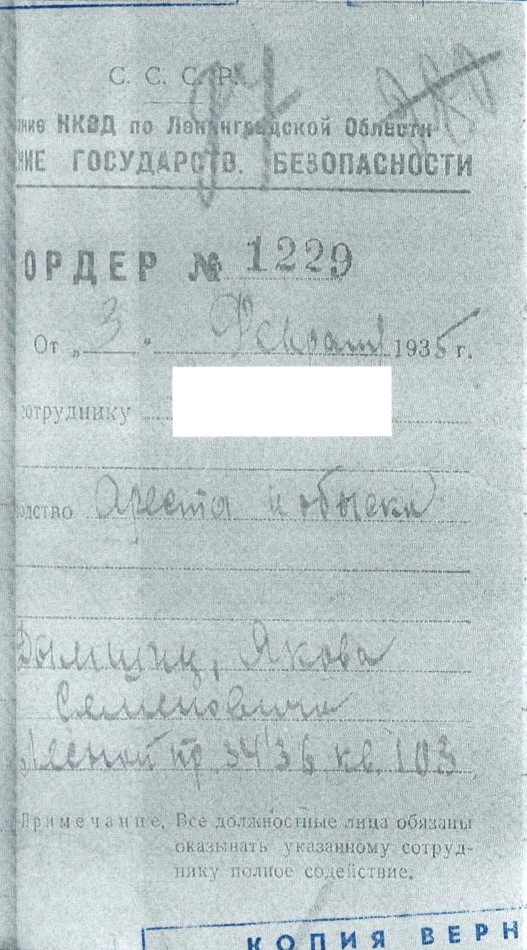 С. С. С. Р.
ние НКВД по Ленинградской Области
НИЕ ГОСУДАРСТВ. БЕЗОПАСНОСТИ
ОРДЕР № 1229
От „ 3 “ Февраля 1935 г.
сотруднику
одство Ареста и обыска
Якова
Семеновича
Лесной пр. 34/36 кв. 103
Примечание. Все должностные лица обязаны
оказывать указанному сотруд-
нику полное содействие.
КОПИЯ ВЕРН